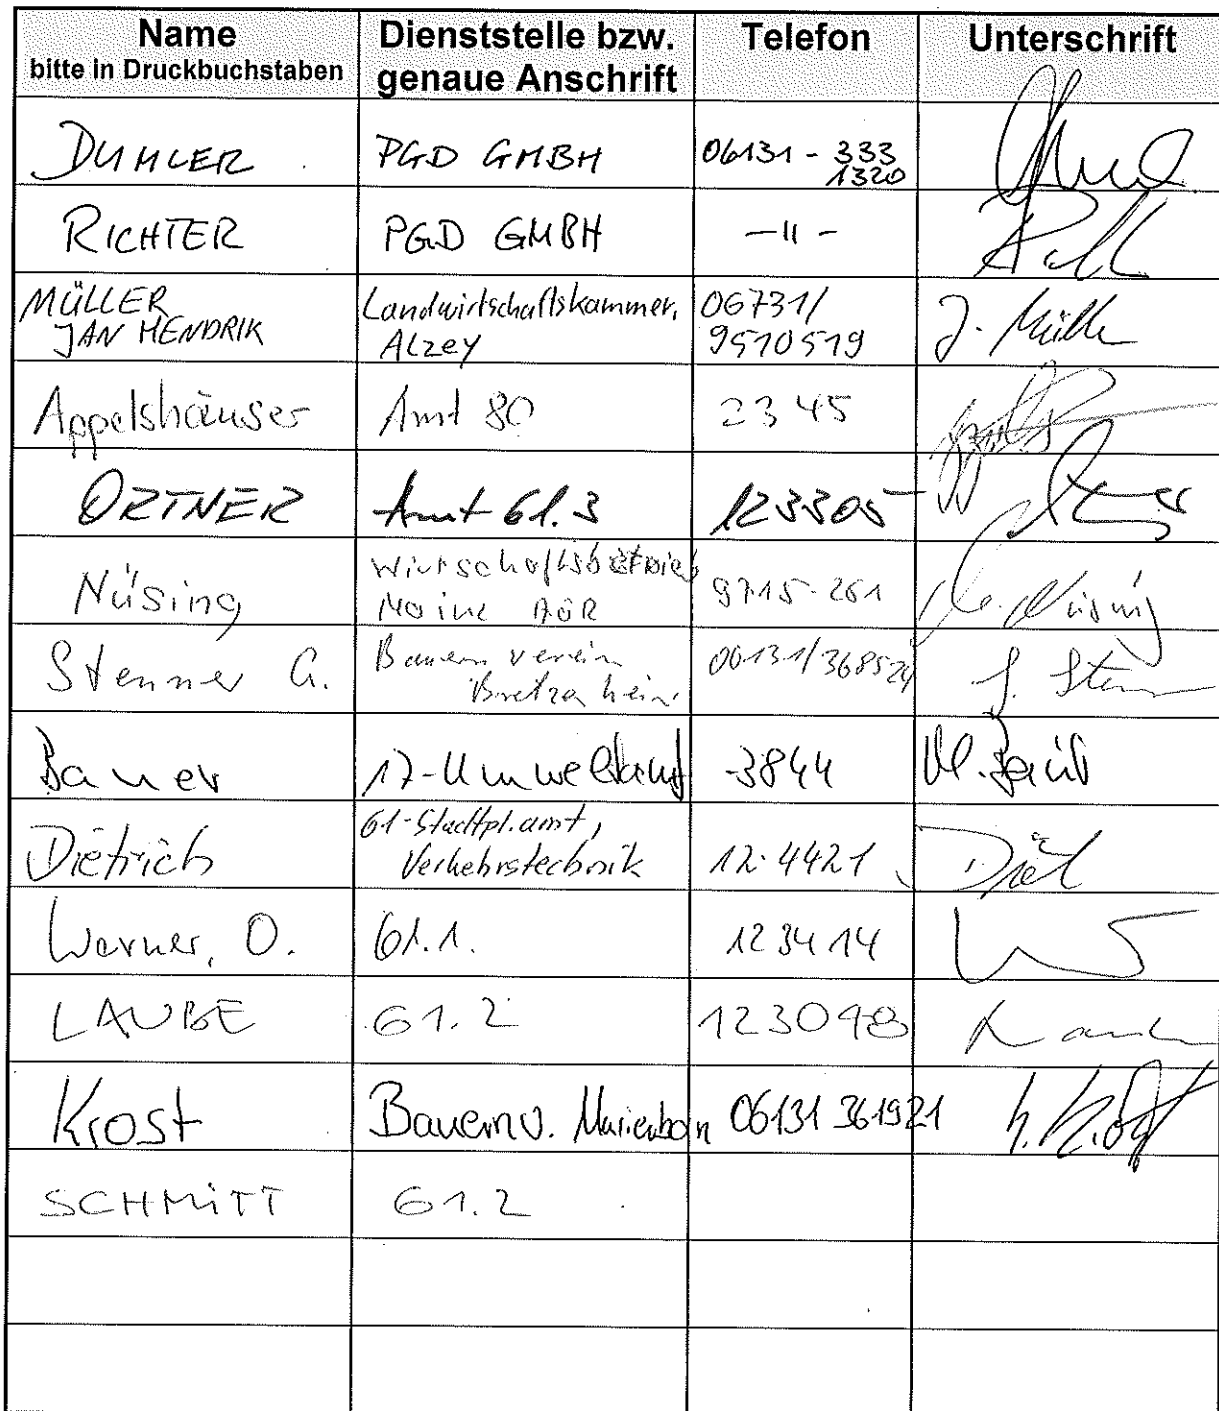 Name
bitte in Druckbuchstaben
Dienststelle bzw.
genaue Anschrift
Telefon
Unterschrift
DUMLER
PGD GMBH
06131 - 333
1320
RICHTER
PGD GMBH
-"-
MÜLLER
JAN HENDRIK
Landwirtschaftskammer,
Alzey
06731/
9510519
J. Müller
Appelshäuser
Amt 80
2345
ORTNER
Amt 61.3
123305
Nüsing
Wirtschaftsbetrieb
Mainz AöR
9715-261
Nüsing
Stenner G.
Bauernverein
Bretzenheim
06131/368524
G. Sten
Bauer
17-Umweltamt
-3844
M. Bauer
Dietrich
61-Stadtpl.amt,
Verkehrstechnik
12-4421
Diet
Werner, O.
61.1.
123414
LAUBE
61.2
123098
Krost
Bauernv. Marienborn
06131 361921
SCHMITT
61.2